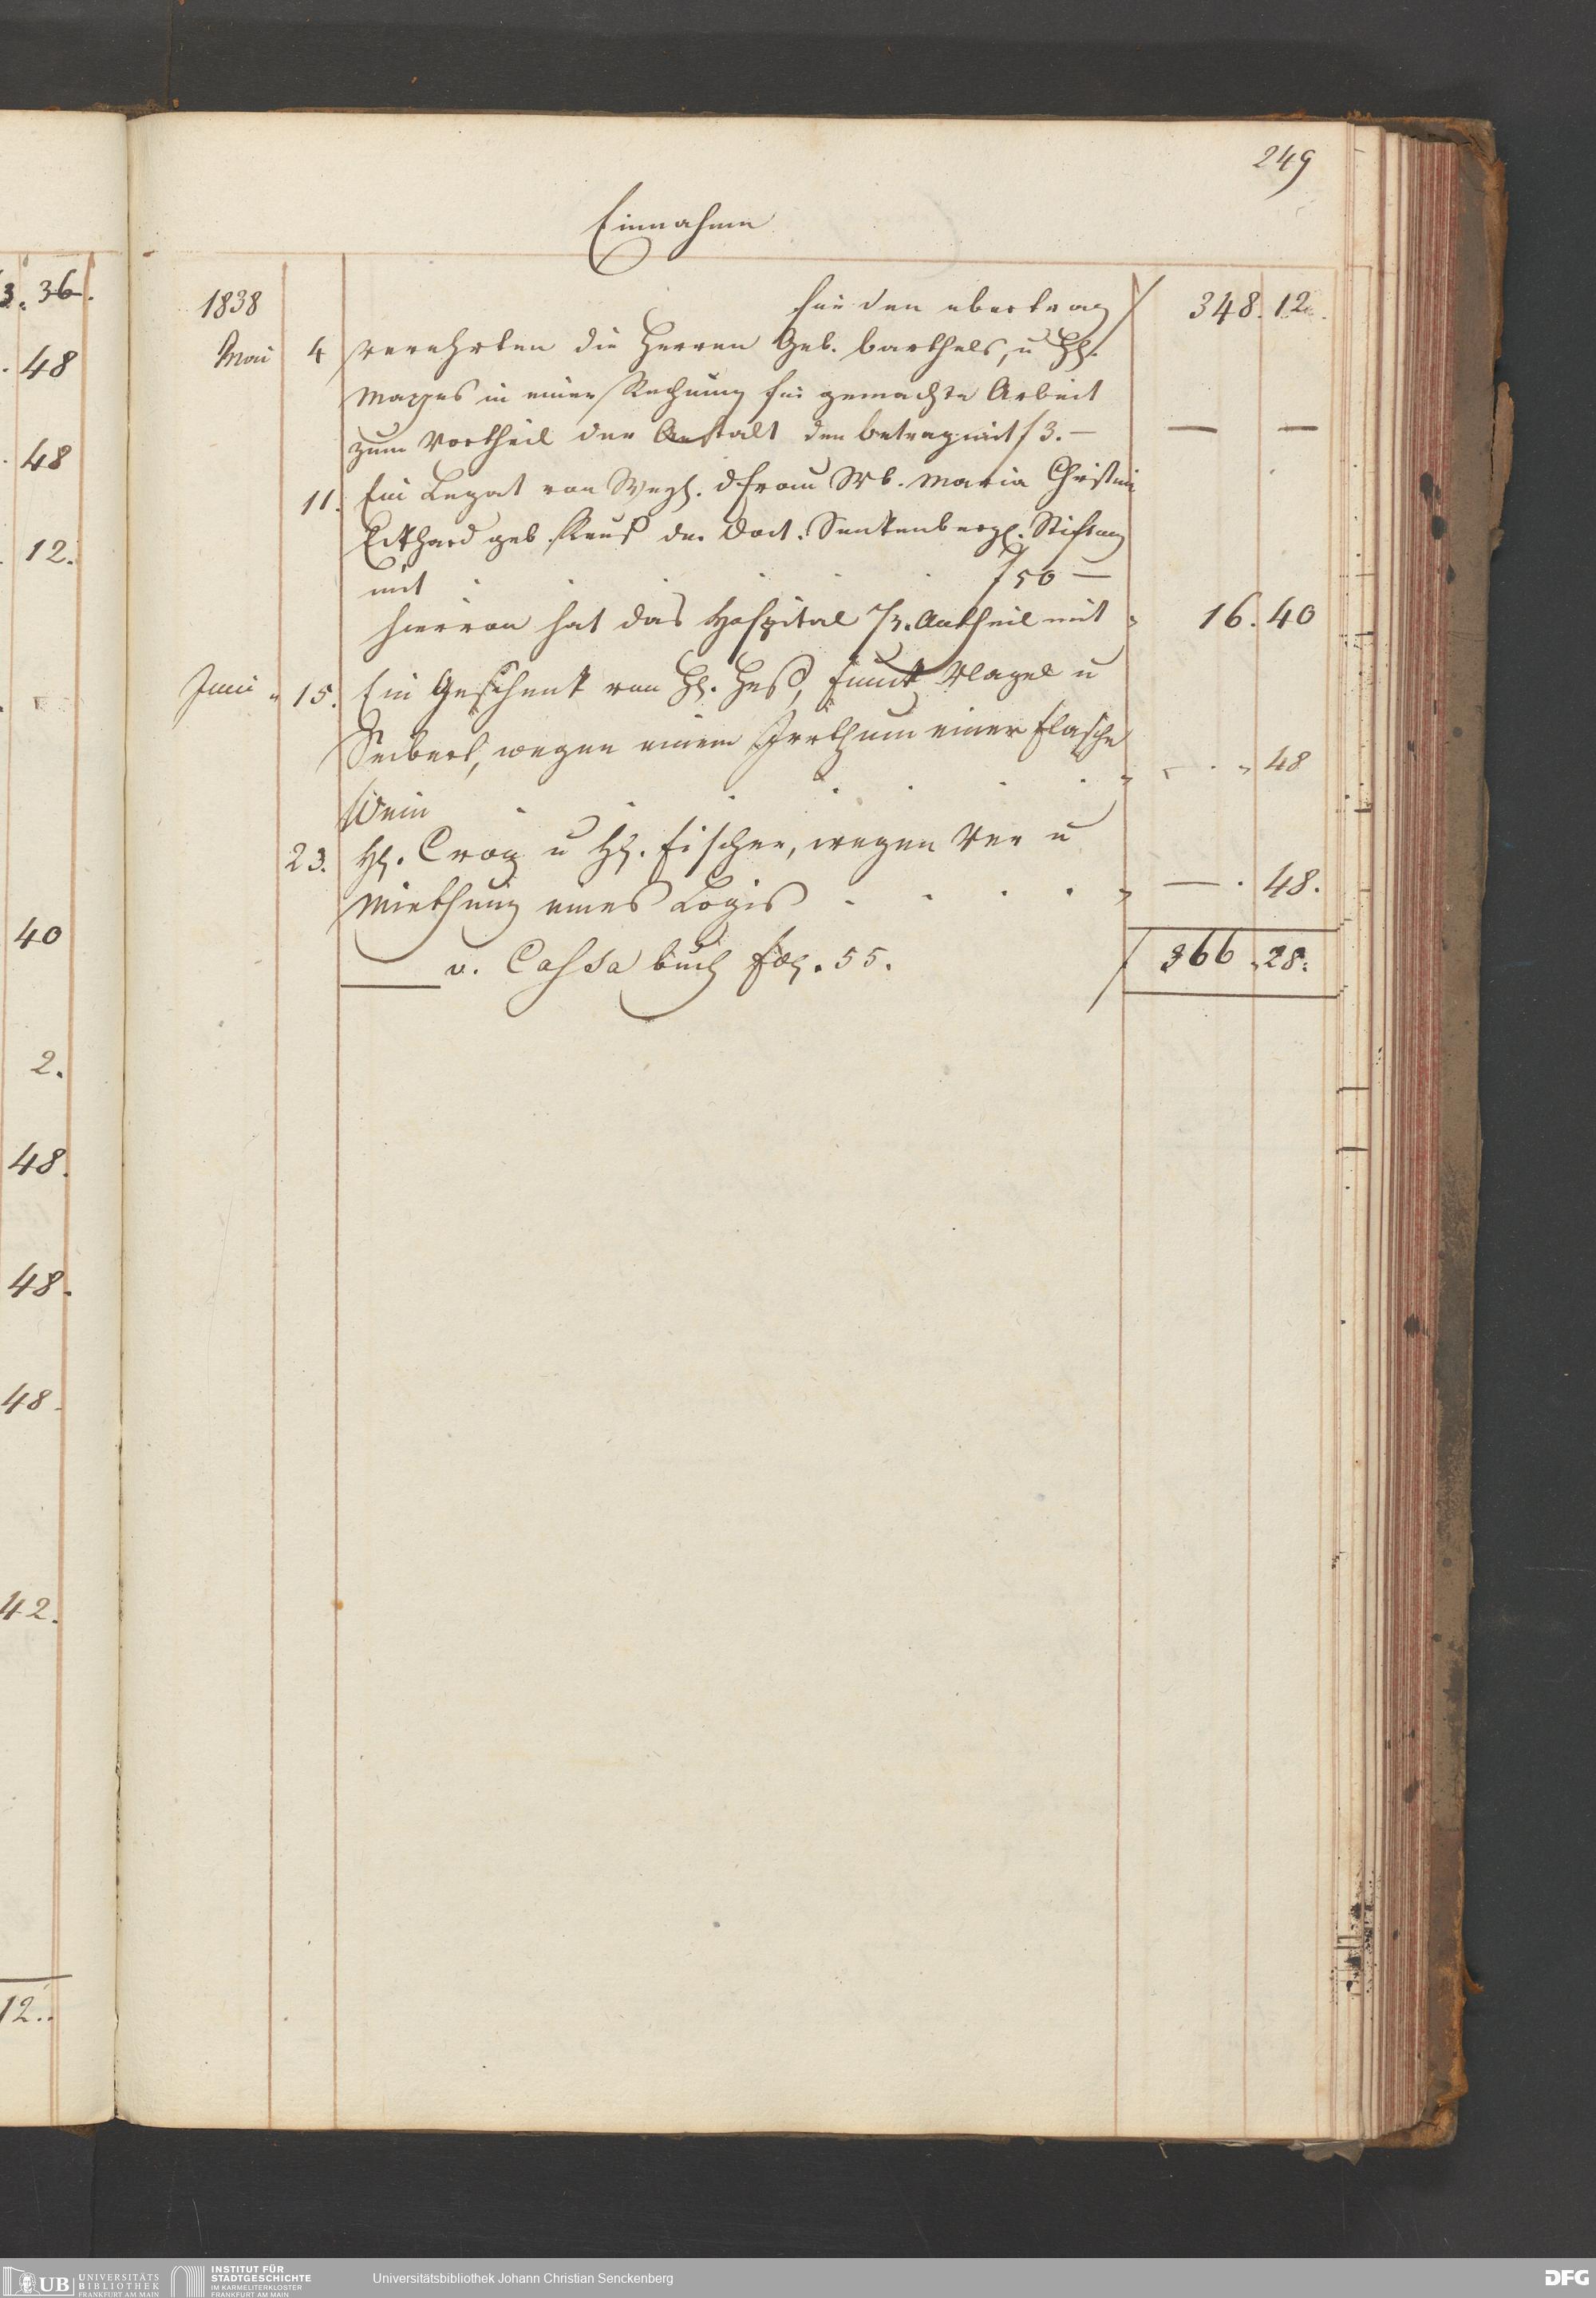 3. 36.
48
48
12.
40
2.
48.
48.
48.
42.
12..
249
Einnahme
1838 für den übertrag f 348. 12.
Mai 4 verehrten die Herren Geb. Barthels, u HH.
Mappes in einer Rechnung für gemachte Arbeit
zum Vortheil der Anstalt den betrag mit f 3.— — —
11. Ein Legat von Frau Wb. Maria Christine
Eckhard geb. der Doct. Senkenbergl. Stiftung
mit . . . . . f 50 —
hievon hat das Hospital 1/3. Antheil mit " 16. 40
Juni " 15. Ein Geschenk von HH. Hess, Funck Nagel u
Seibert, wegen einem Irrthum einer Flasche
Wein . . . . . . . " — . " 48
23. HH. Croy u HH. Fischer, wegen Ver u
Miethung eines Logis . . . . " — . 48.
v. Cassa buch fol. 55. f 366. 28.
UB UNIVERSITÄTS
BIBLIOTHEK
FRANKFURT AM MAIN
INSTITUT FÜR
STADTGESCHICHTE
IM KARMELITERKLOSTER
FRANKFURT AM MAIN
Universitätsbibliothek Johann Christian Senckenberg
DFG